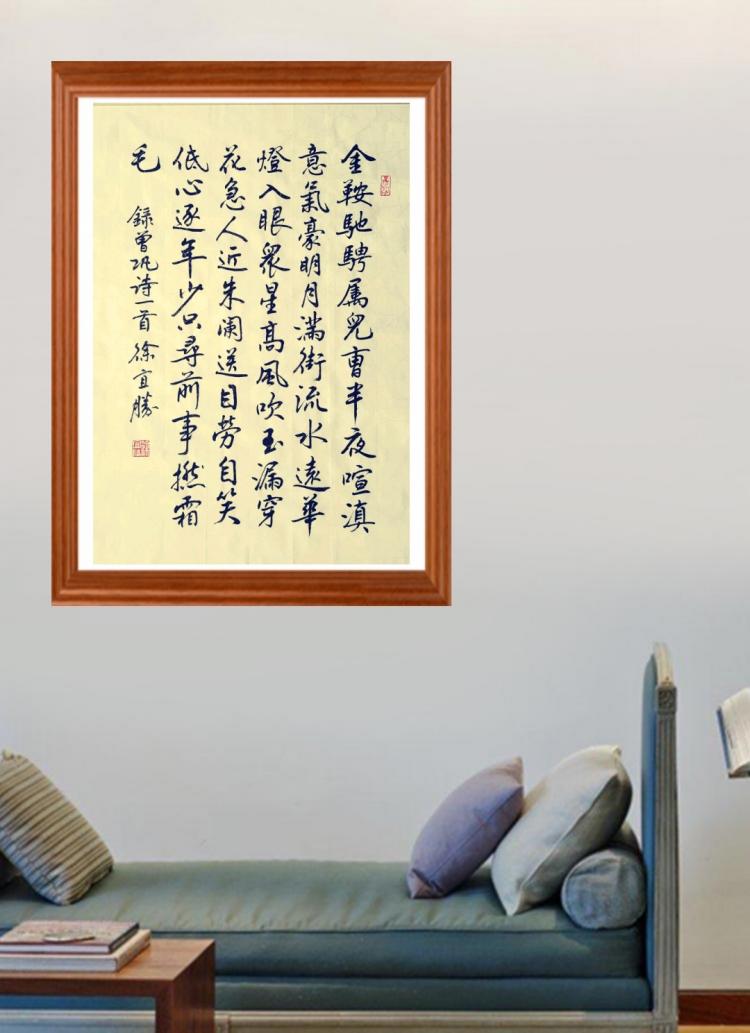 金鞍馳騁属兒曹半夜喧滇
意氣豪明月滿街流水遠華
燈入眼眾星高風吹玉漏穿
花急人近朱闌送目勞自笑
低心逐年少只尋前事撚霜
毛
録曾巩诗一首 徐宜勝